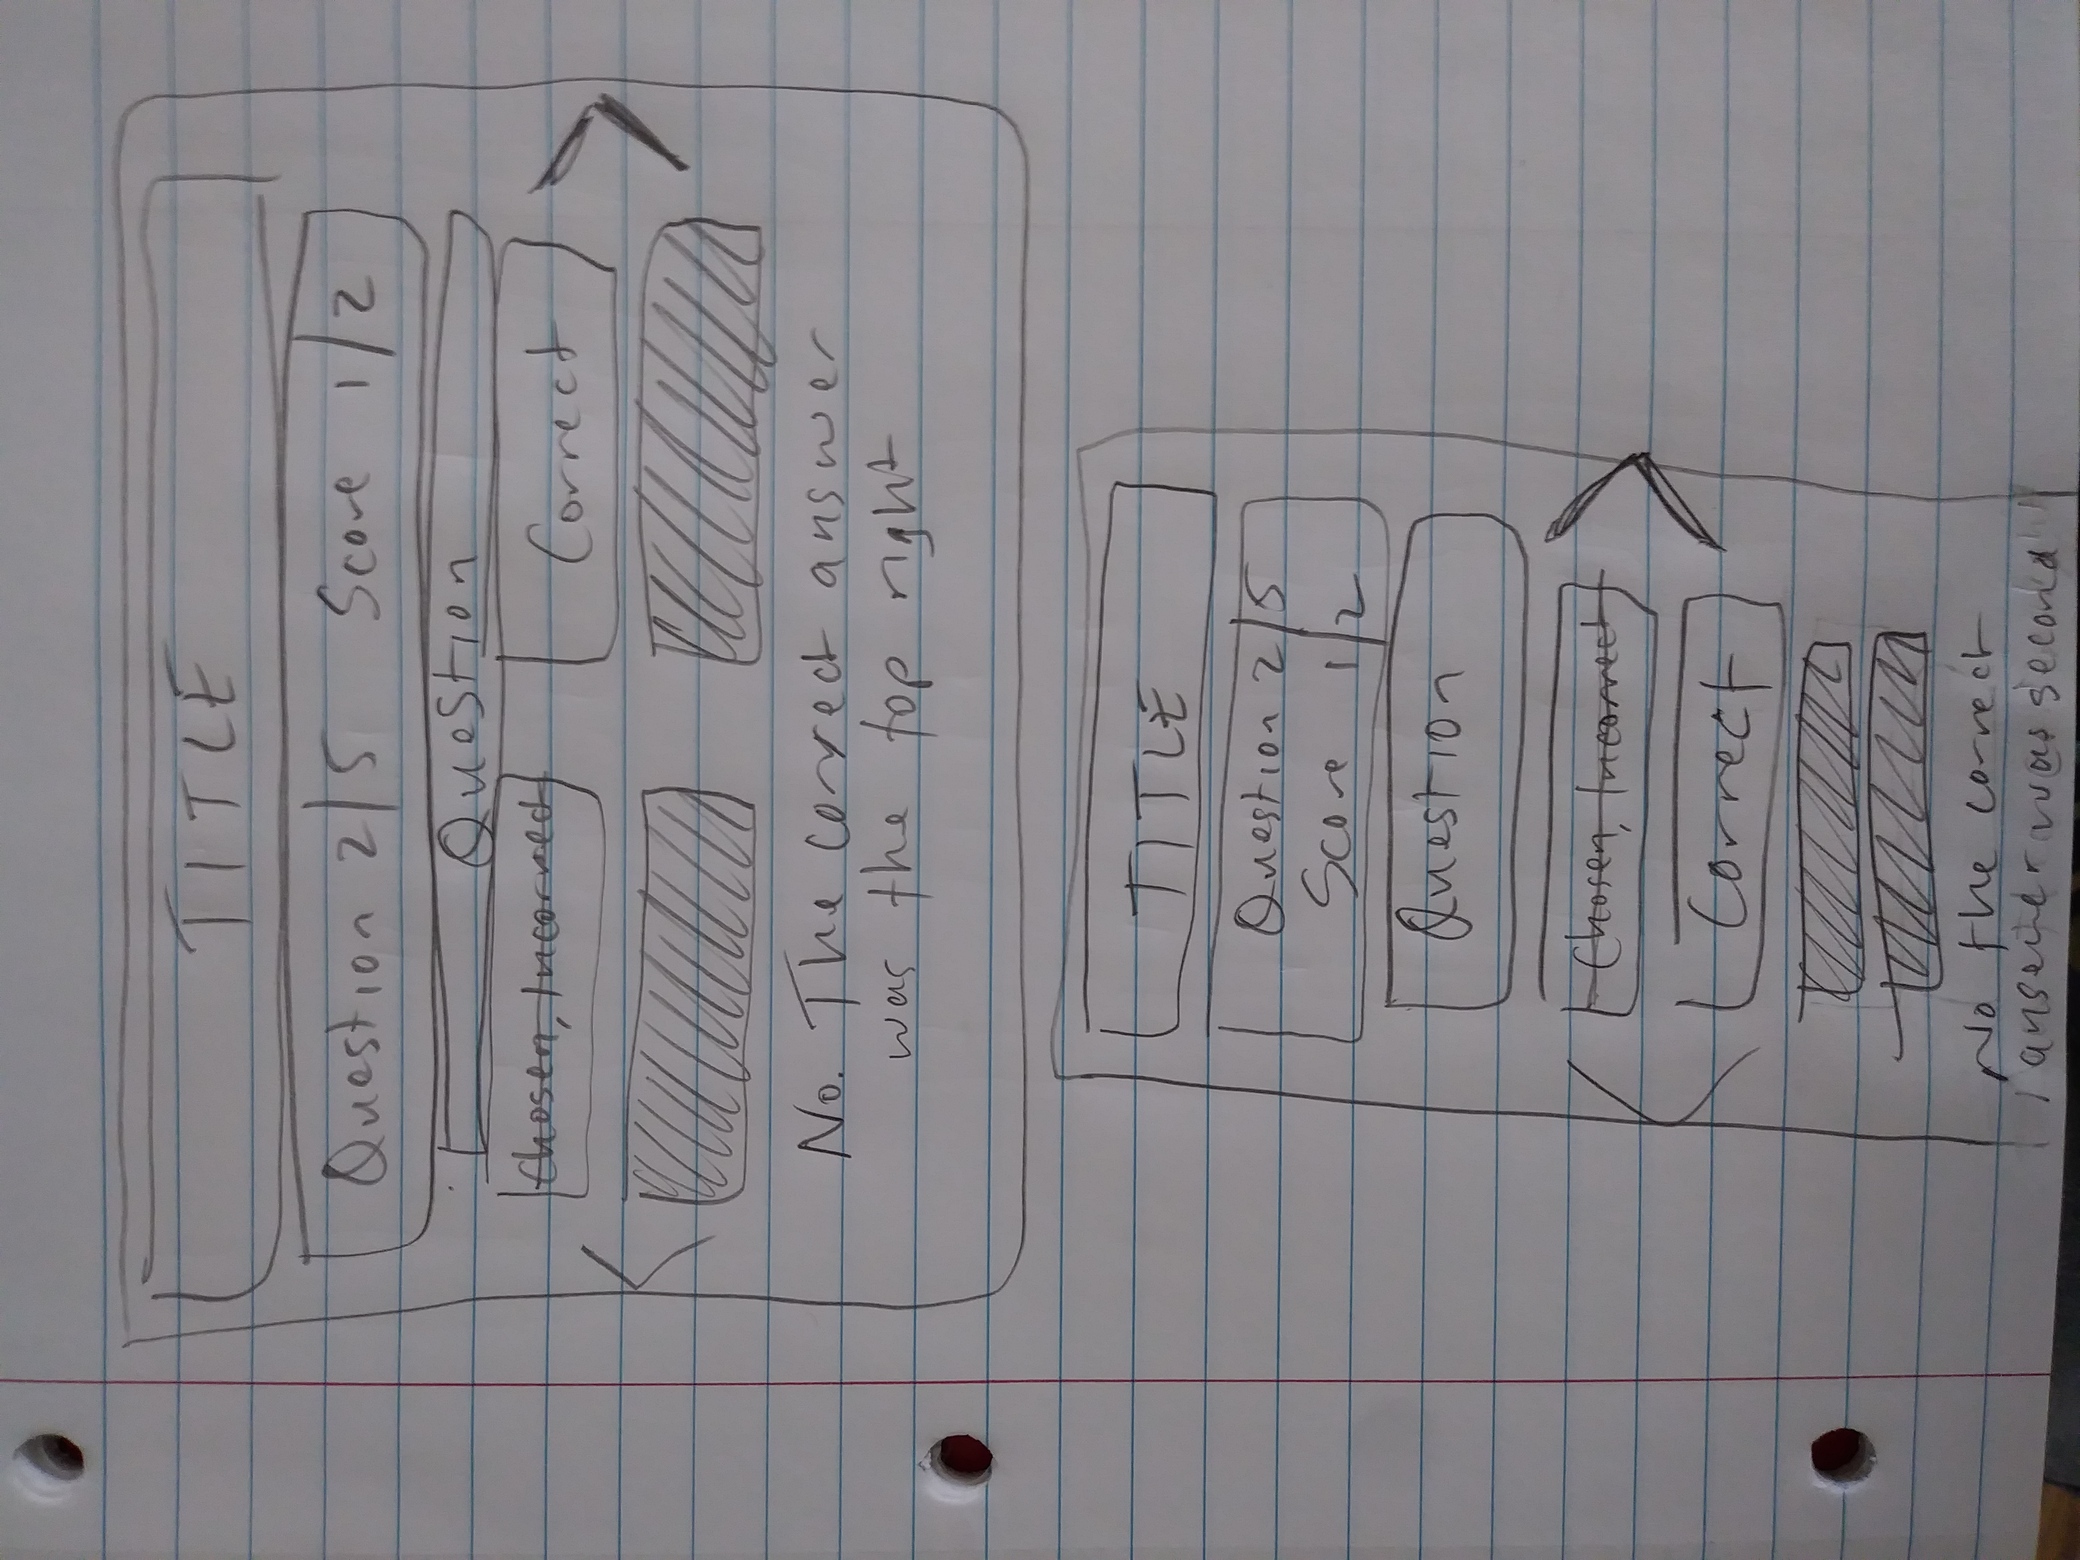 TITLE
Question 2/5 Score 1/2
Question
Chosen, Incorrect
Correct
No. The correct answer
was the top right
TITLE
Question 2/5
Score 1/2
Question
Chosen, Incorrect
Correct
No the correct
answer was second